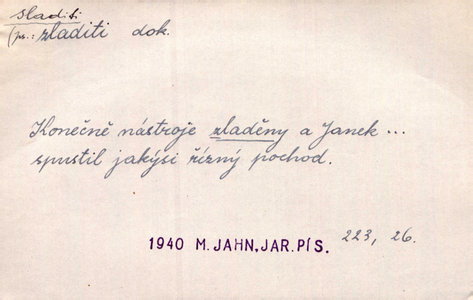 sladiti
(ps.: zladiti dok.
Konečně nástroje zladěny a Janek ...
spustil jakýsi řízný pochod.
1940 M. JAHN, JAR. PÍS. 223, 26.